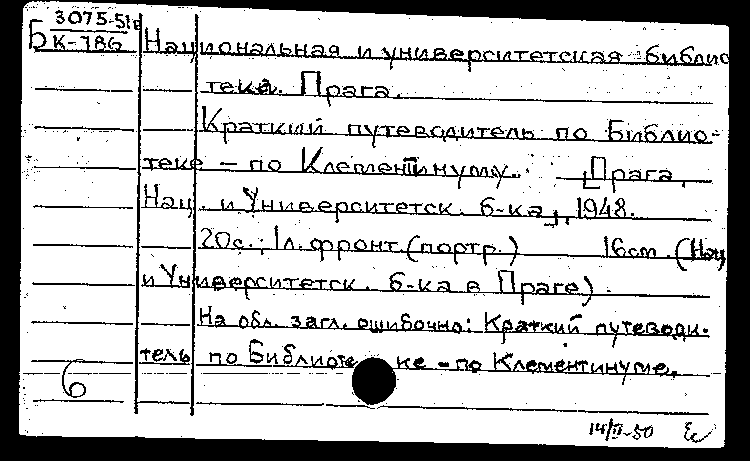 Б 3075-51г
К-786
Национальная и университетская библио
тека. Прага.
Краткий путеводитель по Библио-
теке – по Клементинуму. [Прага,
Нац. и Университетск. б-ка], 1948.
20с.; 1л. фронт. (портр.) 16cm. (Нац
и Университетск. б-ка в Праге).
На обл. загл. ошибочно: Краткий путеводи-
тель по Библиотеке – по Клементинуме.
6
14/II-50